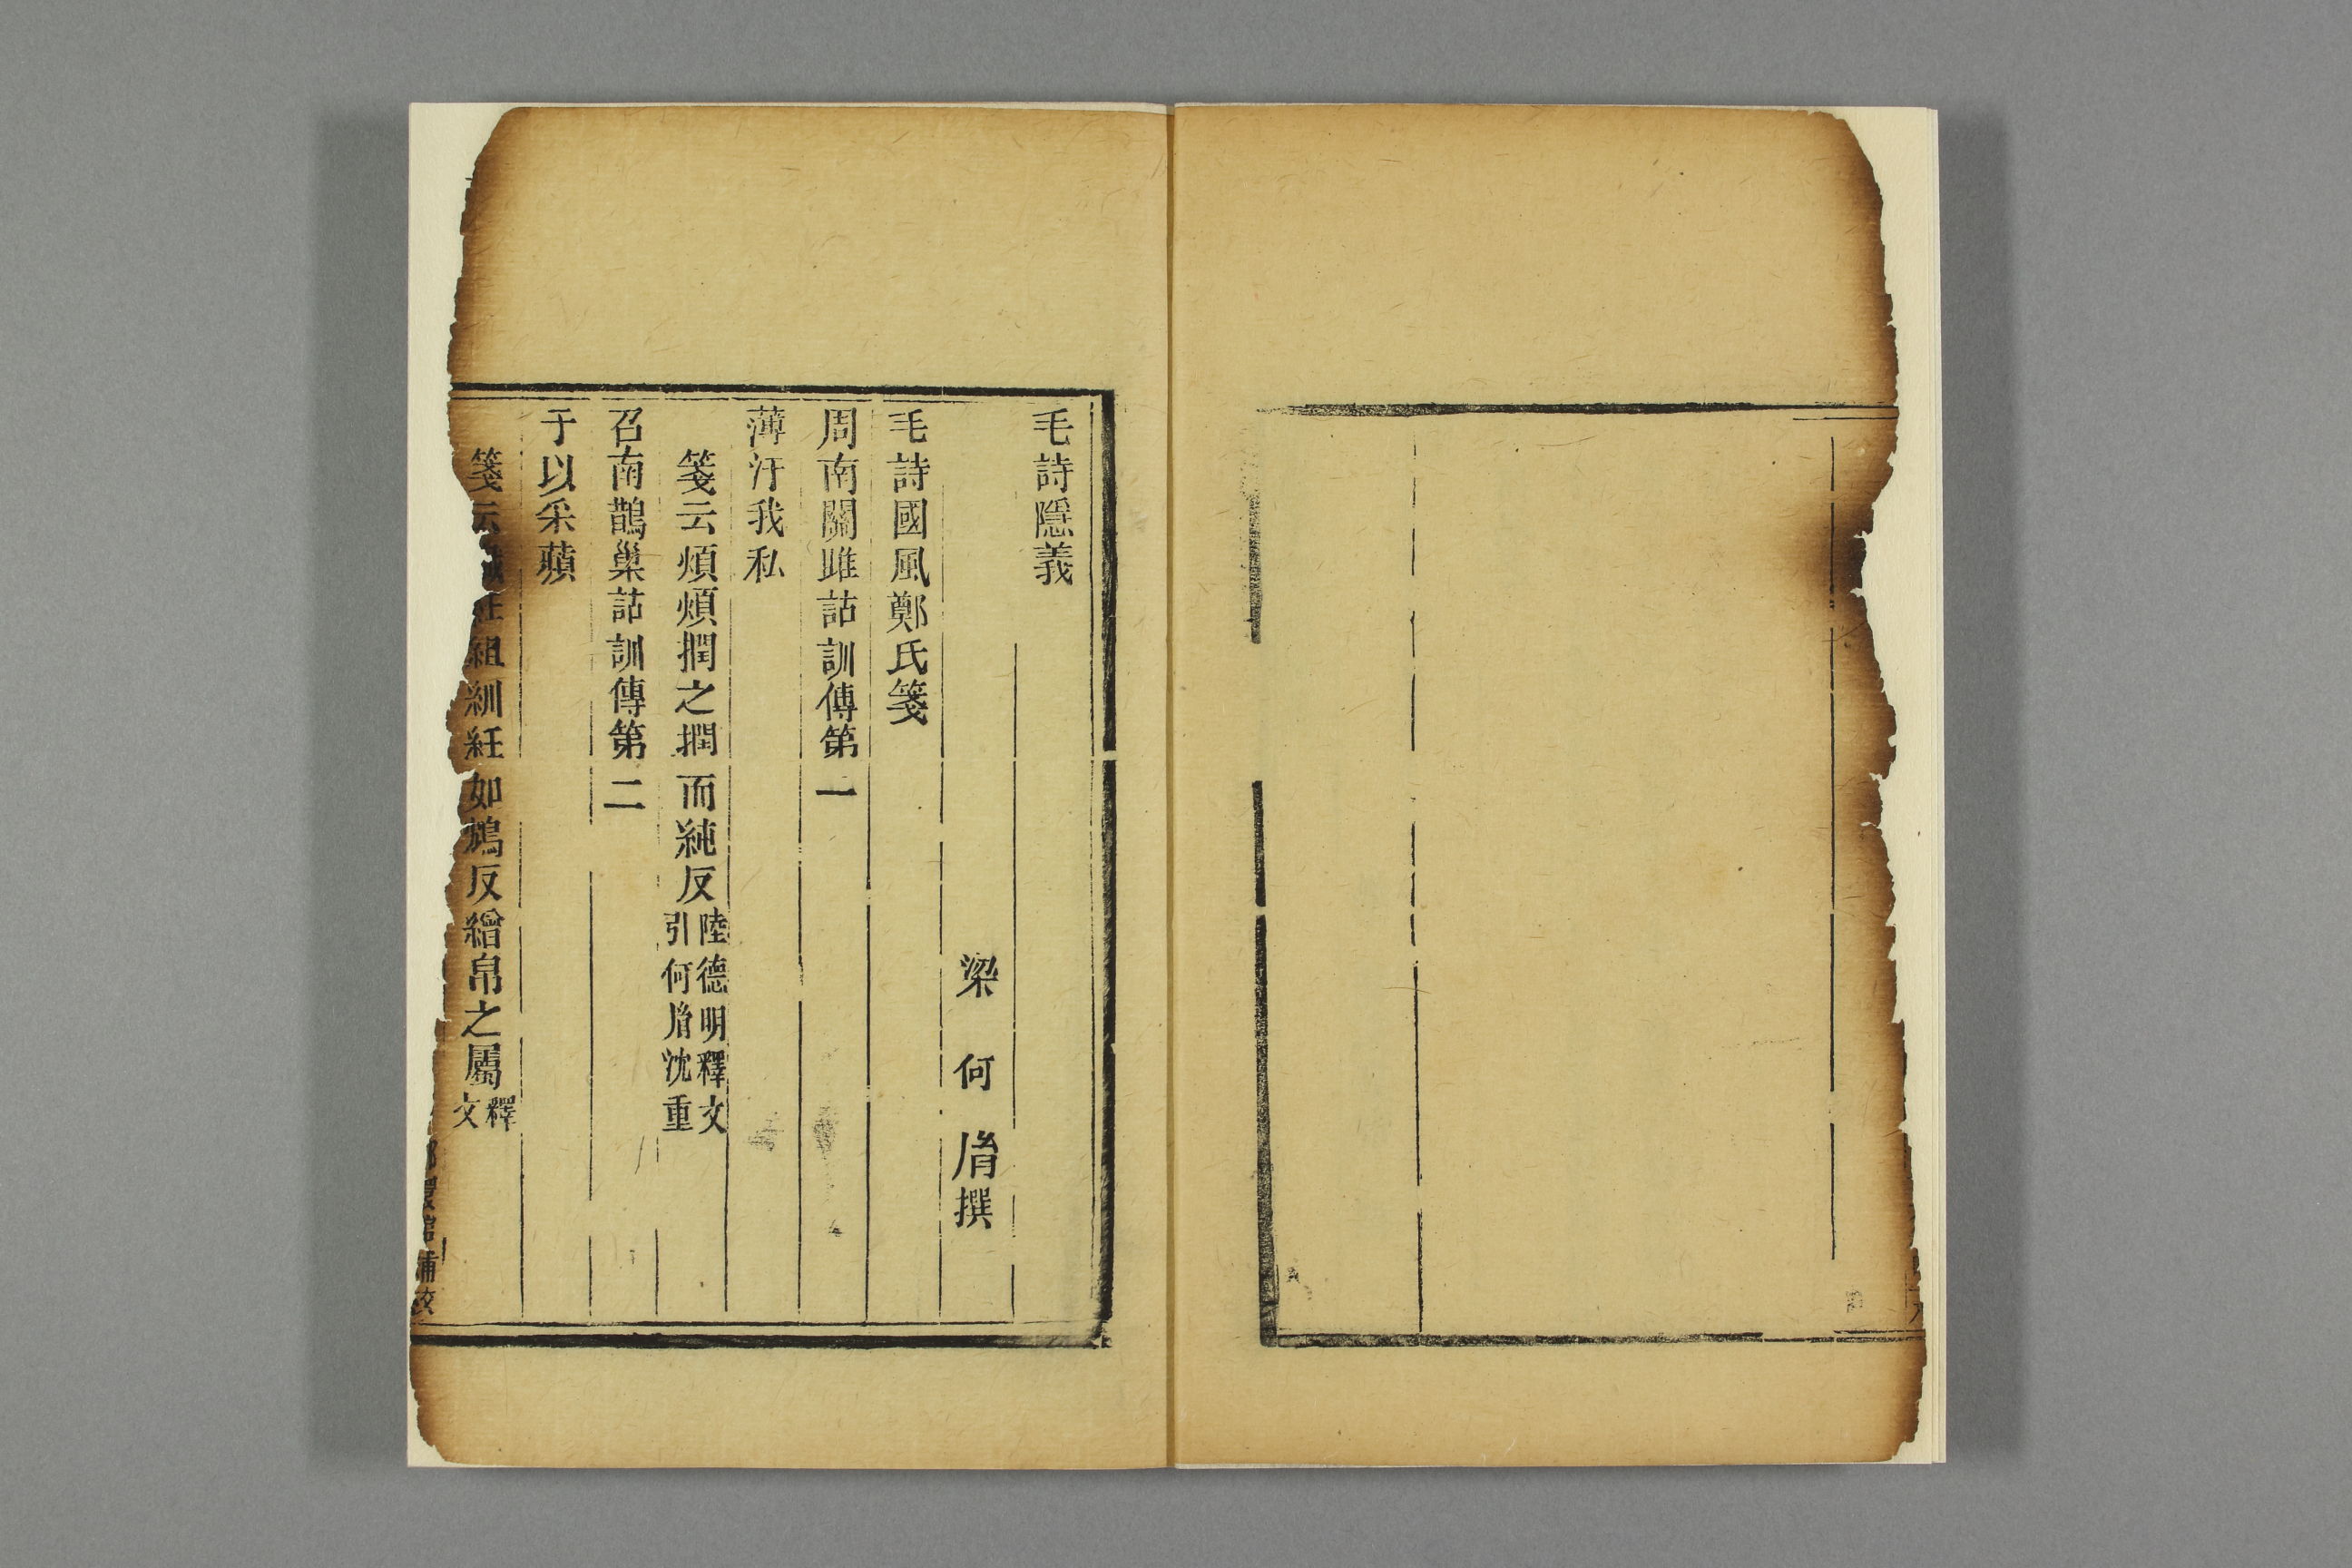 毛詩隱義
梁何胤撰
毛詩國風鄭氏箋
周南關雎詁訓傳第一
薄汙我私
箋云煩煩撋之撋而純反陸德明釋文
引何胤沈重
召南鵲巢詁訓傳第二
于以采蘋
箋云織紝組紃紝如鴆反繒帛之屬釋
文
館補校